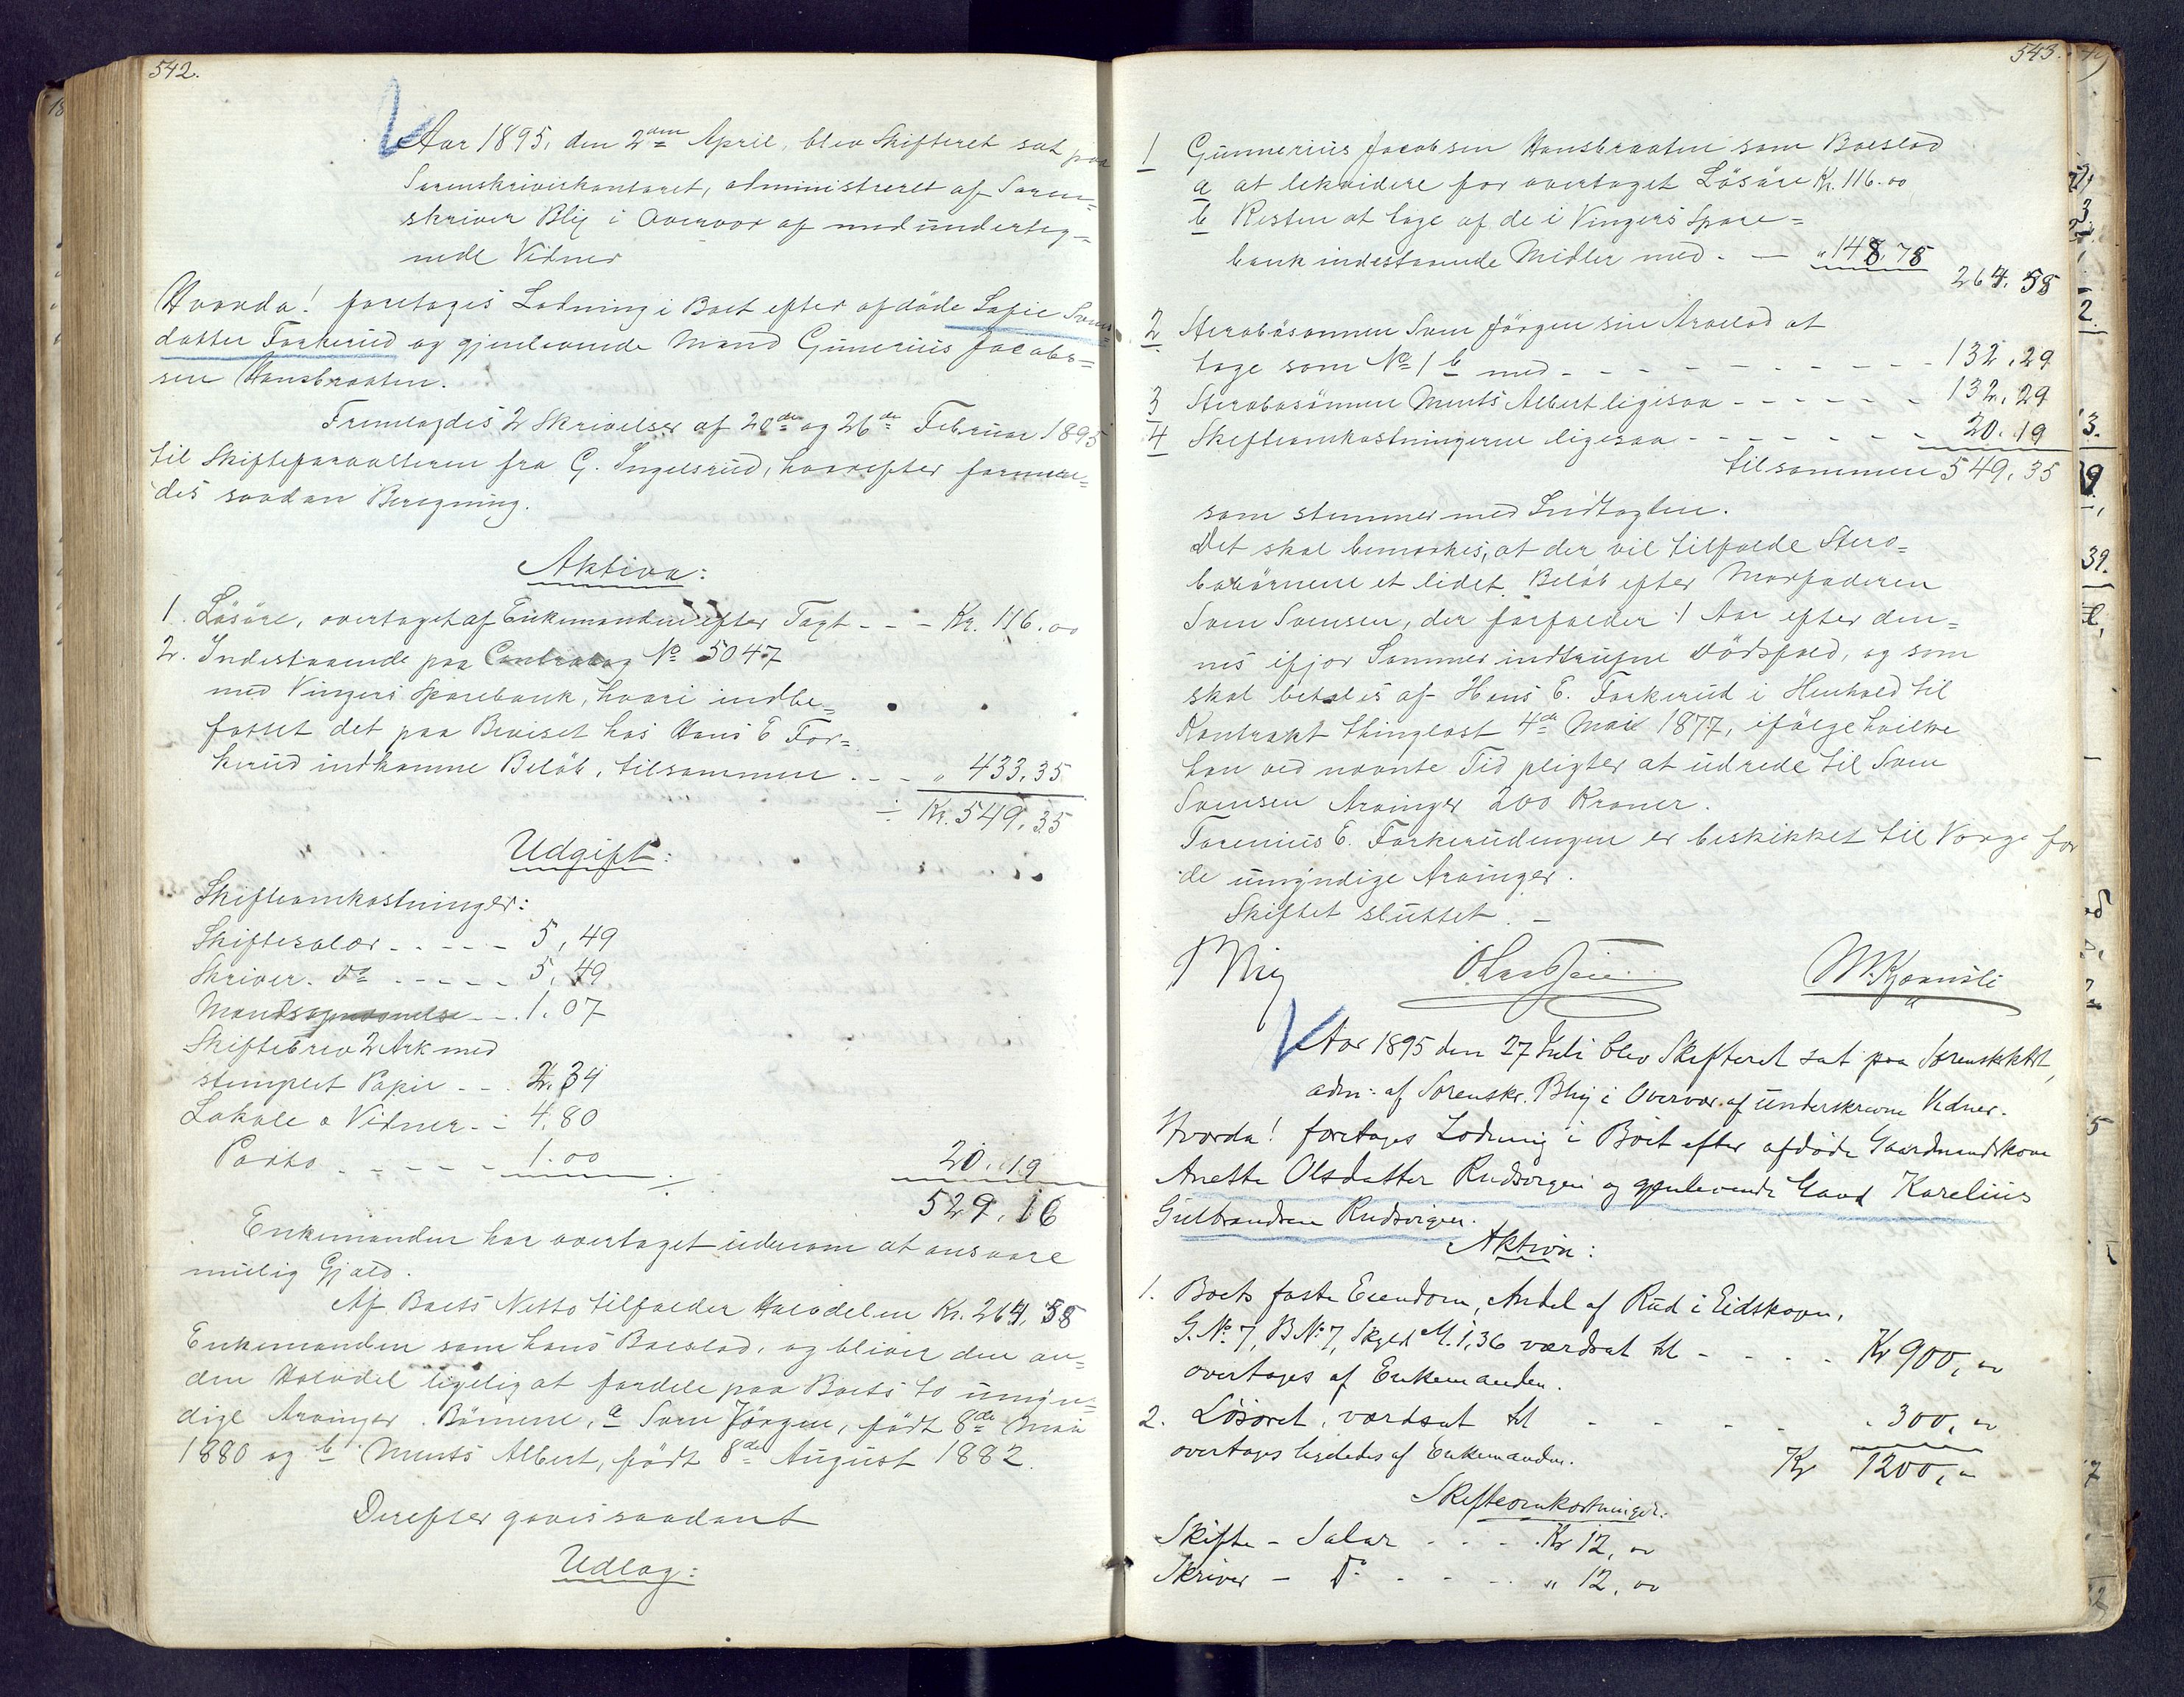 542.
Aar 1895, den 2den April, blev Skifteret sat paa
Sorenskriverkontoret, administreret af Soren=
skriver Blij i Overvær af medunderteg=
nede Vidner
Hvorda! foretoges Lodning i Boet efter afdöde Sofie Svens=
datter Forkerud og gjenlevende Mand Gunerius Jacob=
sen Hansbraaten.
Fremlagdes 2 Skrivelser af 20de og 26de Februar 1895
til Skifteforvalteren fra G. Ingelsrud, hvorefter formene=
des saadan Beregning.
Aktiva:
1. Lösöre, overtaget af Enkemanden efter Taxt - - - Kr. 116.00
2. Indestaaende paa Contrabog No 5047
med Vingers Sparebank, hvori indbe=
fattet det paa Beviset hos Hans E For=
kerud indkomne Belöb, tilsammen - - - „ 433,35
÷ Kr. 549,35
Udgift:
Skifteomkostninger:
Skiftesalær - - - - - 5,49
Skriver. Do - - - - - 5,49
Mandsopnævnelse - - 1.07
Skiftebrev 2 Ark med
stemplet Papir - - - 2.34
Lokale o Vidner - - 4.80
Porto - - - - - 1.00
20.19
529,16
Enkemanden har overtaget udenom at ansvare
mulig Gjæld.
Af Boets Netto tilfalder Halvdelen Kr. 264,58
Enkemanden som hans Boeslod, og bliver den an=
den Halvdel ligelig at fordele paa Boets to umyn=
dige Arvinger. Börnene, a Sven Jörgen, födt 8de Mai
1880 og b Ments Albert, födt 8de August 1882.
Derefter gaves saadant
Udlæg:
543.
1 Gunnerius Jacobsen Hansbraaten som Boeslod
a at lekvidere for overtaget Lösöre Kr. 116.00
b Resten at tage af de i Vingers Spare=
bank indestaaende Midler med - — „148,78
264,58
2 Sterbösönnen Sven Jörgen sin Arvelod at
tage som No 1 b med - - - - - - - - - 132,29
3 Sterbosönnen Ments Albert ligesaa - - - - - - 132,29
4 Skifteomkostningerne ligesaa - - - - - - - 20.19
tilsammen 549,35
som stemmer med Indtægten.
Det skal bemærkes, at der vil tilfalde Sterv=
bobörnene et lidet Belöb efter Morfaderen
Sven Svensen, der forfalder 1 Aar efter den=
nes ifjor Sommer indtrufne Dödsfald, og som
skal betales af Hans E. Forkerud i Henhold til
Kontrakt thinglæst 4de Mai 1877, ifölge hvilken
han ved nævnte Tid pligter at udrede til Sven
Svensen Arvinger 200 Kroner.
Torenius E. Forkerudengen er beskikket til Værge for
de umyndige Arvinger.
Skiftet sluttet. —
Blij
Aar 1895 den 27 Juli blev Skifteret sat paa Sorenskktrt,
adm: af Sorenskr. Blij i Overvær af underskrevne Vidner.
Hvorda! foretoges Lodning i Boet efter afdöde Gaardmandskone
Anette Olsdatter Rudsvigen og gjenlevende Mand Karelius
Gulbrandsen Rudsvigen.
Aktiva:
1. Boets faste Eiendom, Andel af Rud i Eidskogen,
G.No 7, B.No 7, Skyld M. 1,36 værdsat til - - - - Kr 900,00
overtages af Enkemanden.
2. Lösöret, værdsat til - - - - 300,00
overtages ligeledes af Enkemanden. Kr 1200,00
Skifteomkostninger:
Skifte - Salær - - - Kr 12,00
Skriver - Do - - - „ 12,00